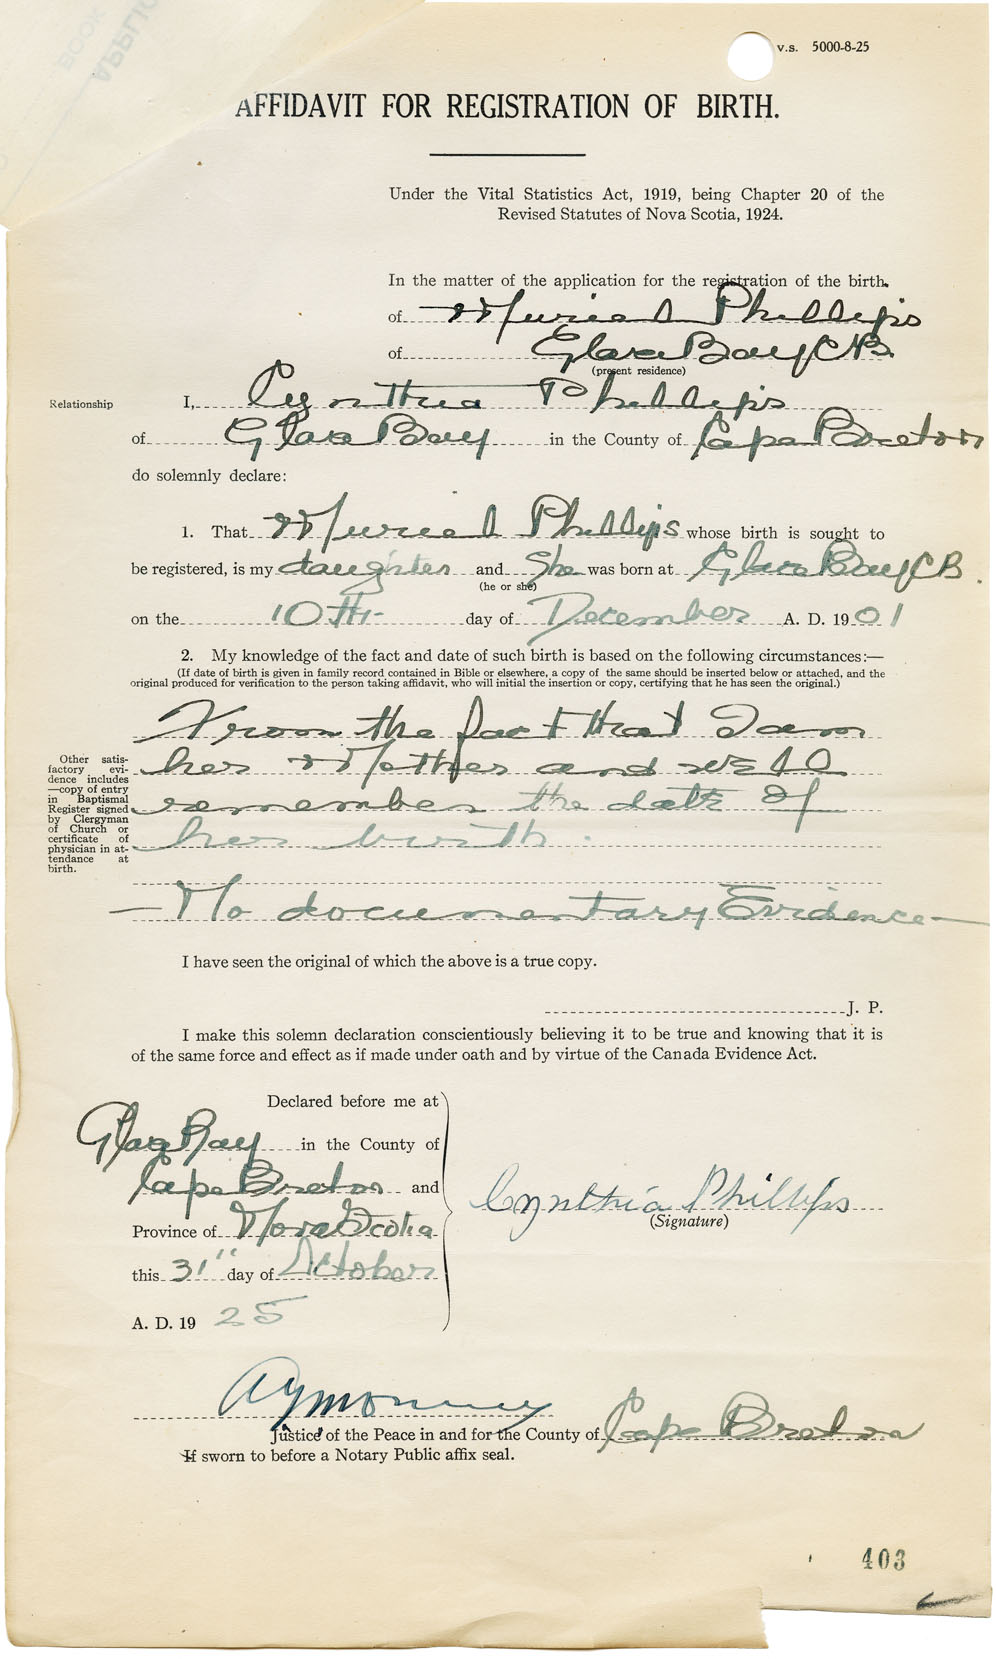 v.s. 5000-8-25
AFFIDAVIT FOR REGISTRATION OF BIRTH.
Under the Vital Statistics Act, 1919, being Chapter 20 of the
Revised Statutes of Nova Scotia, 1924.
In the matter of the application for the registration of the birth
of Muriel Phillips
of Glace Bay CB.
(present residence)
Relationship I, Cynthia Phillips
of Glace Bay in the County of Cape Breton
do solemnly declare:
1. That Muriel Phillips whose birth is sought to
be registered, is my daughter and She was born at Glace Bay CB.
(he or she)
on the 10th day of December A. D. 1901
2. My knowledge of the fact and date of such birth is based on the following circumstances:—
(If date of birth is given in family record contained in Bible or elsewhere, a copy of the same should be inserted below or attached, and the
original produced for verification to the person taking affidavit, who will initial the insertion or copy, certifying that he has seen the original.)
From the fact that I am
her Mother and well
remember the date of
her birth.
— No documentary Evidence —
Other satis-
factory evi-
dence includes
—copy of entry
in Baptismal
Register signed
by Clergyman
of Church or
certificate of
physician in at-
tendance at
birth.
I have seen the original of which the above is a true copy.
J. P.
I make this solemn declaration conscientiously believing it to be true and knowing that it is
of the same force and effect as if made under oath and by virtue of the Canada Evidence Act.
Declared before me at
Glace Bay in the County of
Cape Breton and
Province of Nova Scotia
this 31" day of October
A. D. 1925
Cynthia Phillips
(Signature)
Justice of the Peace in and for the County of Cape Breton
If sworn to before a Notary Public affix seal.
403